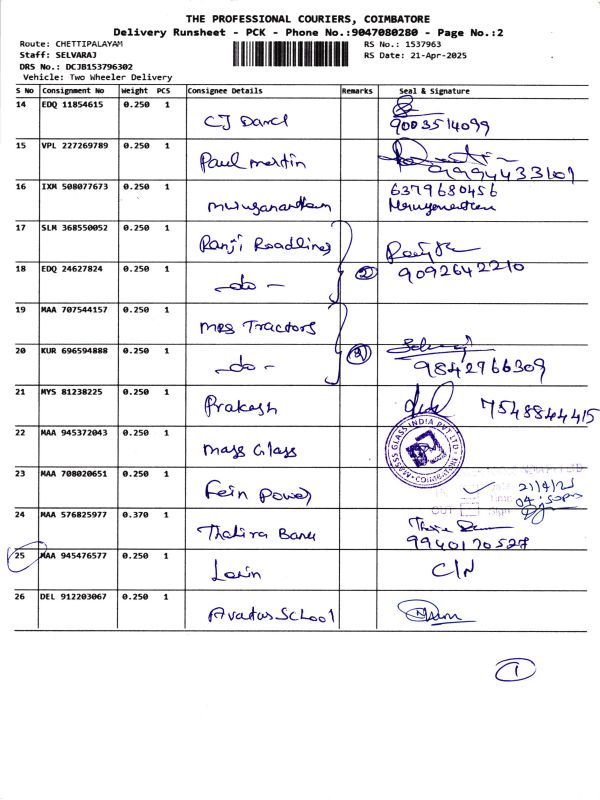 THE PROFESSIONAL COURIERS, COIMBATORE
Delivery Runsheet - PCK - Phone No.:9047080280 - Page No.:2
Route: CHETTIPALAYAM RS No.: 1537963
Staff: SELVARAJ RS Date: 21-Apr-2025
DRS No.: DCJB153796302
Vehicle: Two Wheeler Delivery
S No Consignment No Weight PCS Consignee Details Remarks Seal & Signature
14 EDQ 11854615 0.250 1
CJ Darcl 9003514099
15 VPL 227269789 0.250 1
Paul mertin 9994433101
16 IXM 508077673 0.250 1 6379680456
Muruganantham
17 SLM 368550052 0.250 1
Ranji Roadlines
18 EDQ 24627824 0.250 1 2 9092642210
-do-
19 MAA 707544157 0.250 1
MPS Tractors
20 KUR 696594888 0.250 1
-do- 2 9842966309
21 MYS 81238225 0.250 1
Prakash 7548844415
22 MAA 945372043 0.250 1
Mass Glass MASSS GLASS INDIA PVT LTD COIMBATORE
23 MAA 708020651 0.250 1 21/4/25
Fein Power 04:50pm
OUT Sign
24 MAA 576825977 0.370 1
Thahira Banu 9940170527
25 MAA 945476577 0.250 1
C/N
26 DEL 912203067 0.250 1
Avatar School
1